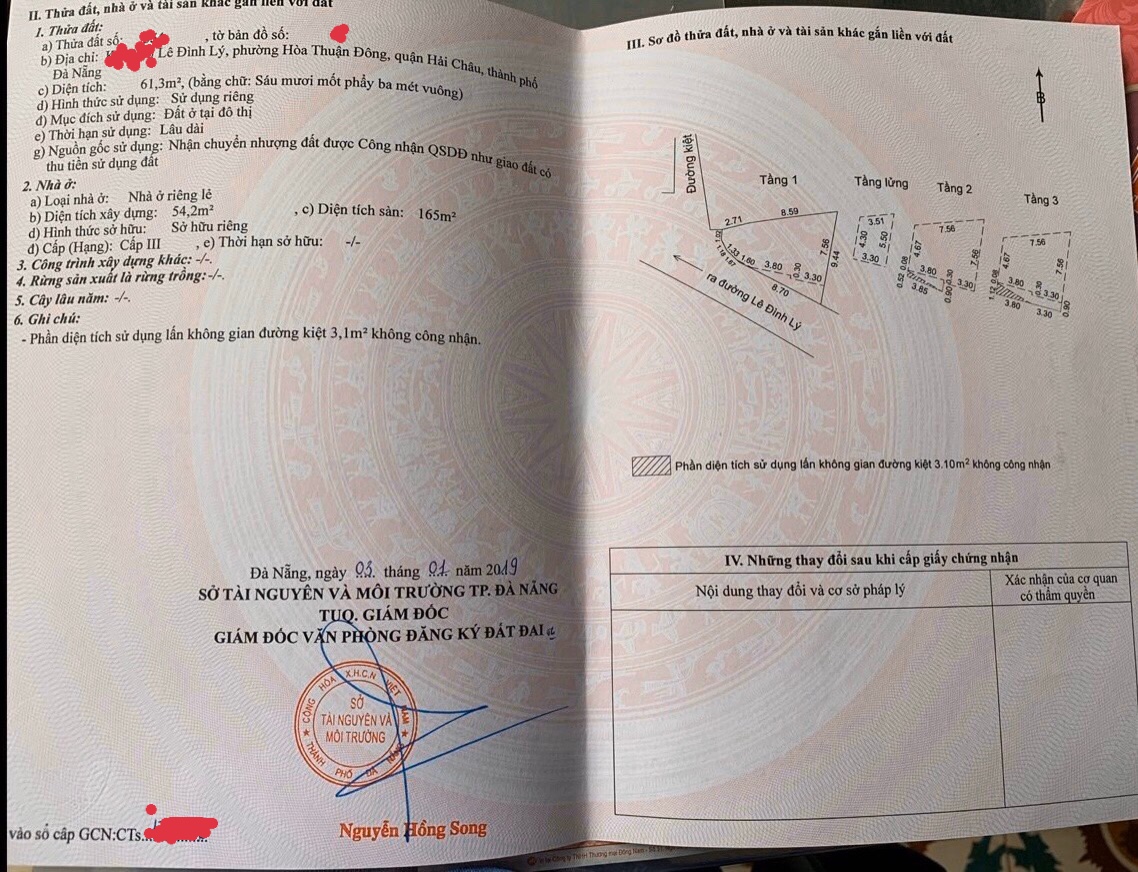 II. Thửa đất, nhà ở và tài sản khác gắn liền với đất
1. Thửa đất:
a) Thửa đất số: , tờ bản đồ số:
b) Địa chỉ: Lê Đình Lý, phường Hòa Thuận Đông, quận Hải Châu, thành phố
Đà Nẵng
c) Diện tích: 61,3m², (bằng chữ: Sáu mươi mốt phẩy ba mét vuông)
d) Hình thức sử dụng: Sử dụng riêng
đ) Mục đích sử dụng: Đất ở tại đô thị
e) Thời hạn sử dụng: Lâu dài
g) Nguồn gốc sử dụng: Nhận chuyển nhượng đất được Công nhận QSDĐ như giao đất có
thu tiền sử dụng đất
2. Nhà ở:
a) Loại nhà ở: Nhà ở riêng lẻ
b) Diện tích xây dựng: 54,2m² , c) Diện tích sàn: 165m²
d) Hình thức sở hữu: Sở hữu riêng
đ) Cấp (Hạng): Cấp III , e) Thời hạn sở hữu: -/-
3. Công trình xây dựng khác: -/-.
4. Rừng sản xuất là rừng trồng: -/-.
5. Cây lâu năm: -/-.
6. Ghi chú:
- Phần diện tích sử dụng lấn không gian đường kiệt 3,1m² không công nhận.
Đà Nẵng, ngày 03 tháng 01 năm 2019
SỞ TÀI NGUYÊN VÀ MÔI TRƯỜNG TP. ĐÀ NẴNG
TUQ. GIÁM ĐỐC
GIÁM ĐỐC VĂN PHÒNG ĐĂNG KÝ ĐẤT ĐAI
CỘNG HÒA X.H.C.N VIỆT NAM
SỞ
TÀI NGUYÊN VÀ
MÔI TRƯỜNG
THÀNH PHỐ ĐÀ NẴNG
Nguyễn Hồng Song
vào sổ cấp GCN:CTs
III. Sơ đồ thửa đất, nhà ở và tài sản khác gắn liền với đất
B
Đường kiệt
Tầng 1
2.71
8.59
7.56
9.44
1.33
1.60
3.80
0.30
3.30
8.70
ra đường Lê Đình Lý
Tầng lửng
3.51
4.30
5.50
3.30
Tầng 2
7.56
4.67
7.56
0.52
0.08
3.80
0.30
3.30
3.85
0.90
Tầng 3
7.56
4.67
7.56
1.12
0.08
3.80
0.30
3.30
3.80
3.30
0.90
Phần diện tích sử dụng lấn không gian đường kiệt 3.10m² không công nhận
IV. Những thay đổi sau khi cấp giấy chứng nhận
Nội dung thay đổi và cơ sở pháp lý
Xác nhận của cơ quan
có thẩm quyền